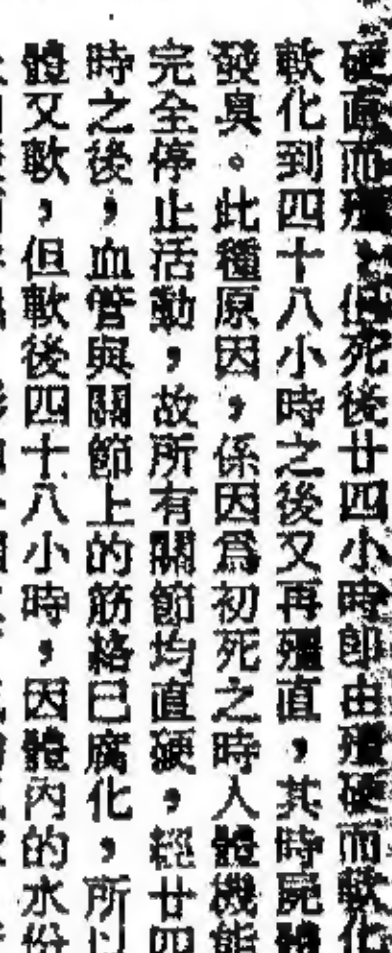 硬直而殭，但死後廿四小時即由殭硬而軟化
軟化到四十八小時之後又再殭直，其時屍體
發臭。此種原因，係因爲初死之時人體機能
完全停止活動，故所有關節均直硬，經廿四
時之後，血管與關節上的筋格已腐化，所以
體又軟，但軟後四十八小時，因體內的水份